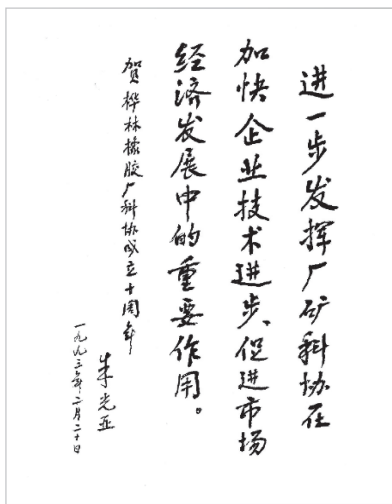 进一步发挥厂矿科协在
加快企业技术进步、促进市场
经济发展中的重要作用。
贺桦林橡胶厂科协成立十周年
朱光亚
一九九三年二月二十日